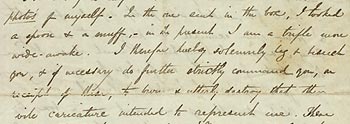 photos of myself. In the one sent in the box, I looked
a spoon & a muff, - in the present I am a trifle more
wide-awake. I therefore hereby solemnly beg & beseech
you, & if necessary do further strictly command you, on
receipt of these, to burn & utterly destroy that other
vile caricature intended to represent me. There